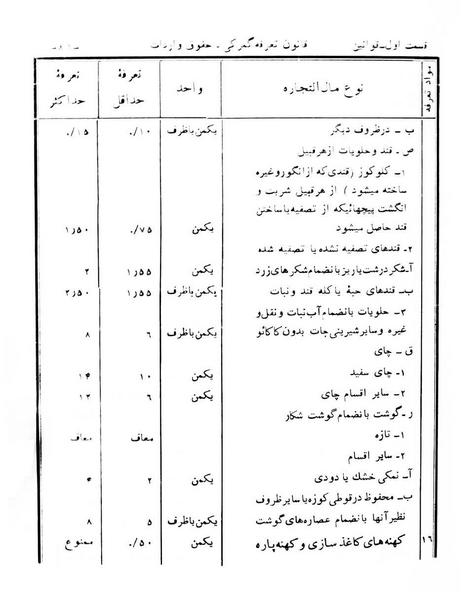 قسمت اول - قوانین قانون تعرفه گمرکی - حقوق واردات
مواد تعرفه نوع مال‌التجاره واحد تعرفهٔ حداقل تعرفهٔ حداکثر
ب - در ظروف دیگر یکمن باظرف ۰/۱۰ ۰/۱۵
ص - قند و حلویات از هر قبیل
۱- کلوکوز (قندی که از انگور و غیره
ساخته میشود) از هر قبیل شربت و
انگشت پیچهائیکه از تصفیه یا ساختن
قند حاصل میشود یکمن ۰/۷۵ ۱٫۵۰
۲- قندهای تصفیه نشده یا تصفیه شده
آ- شکر درشت یا ریز بانضمام شکرهای زرد یکمن ۱٫۵۵ ۲
ب- قندهای حبهٔ یا کله قند و نبات یکمن باظرف ۱٫۵۵ ۲٫۵۰
۳- حلویات بانضمام آب نبات و نقل و
غیره و سایر شیرینی جات بدون کاکائو یکمن باظرف ۶ ۸
ق - چای
۱- چای سفید یکمن ۱۰ ۱۴
۲- سایر اقسام چای یکمن ۶ ۱۲
ر- گوشت بانضمام گوشت شکار
۱- تازه معاف معاف
۲- سایر اقسام
آ- نمکی خشک یا دودی یکمن ۲ ۴
ب- محفوظ در قوطی کوزه یا سایر ظروف
نظیر آنها بانضمام عصاره‌های گوشت یکمن باظرف ۵ ۸
۱۶ کهنه‌های کاغذ سازی و کهنه پاره یکمن ۰/۵۰ ممنوع